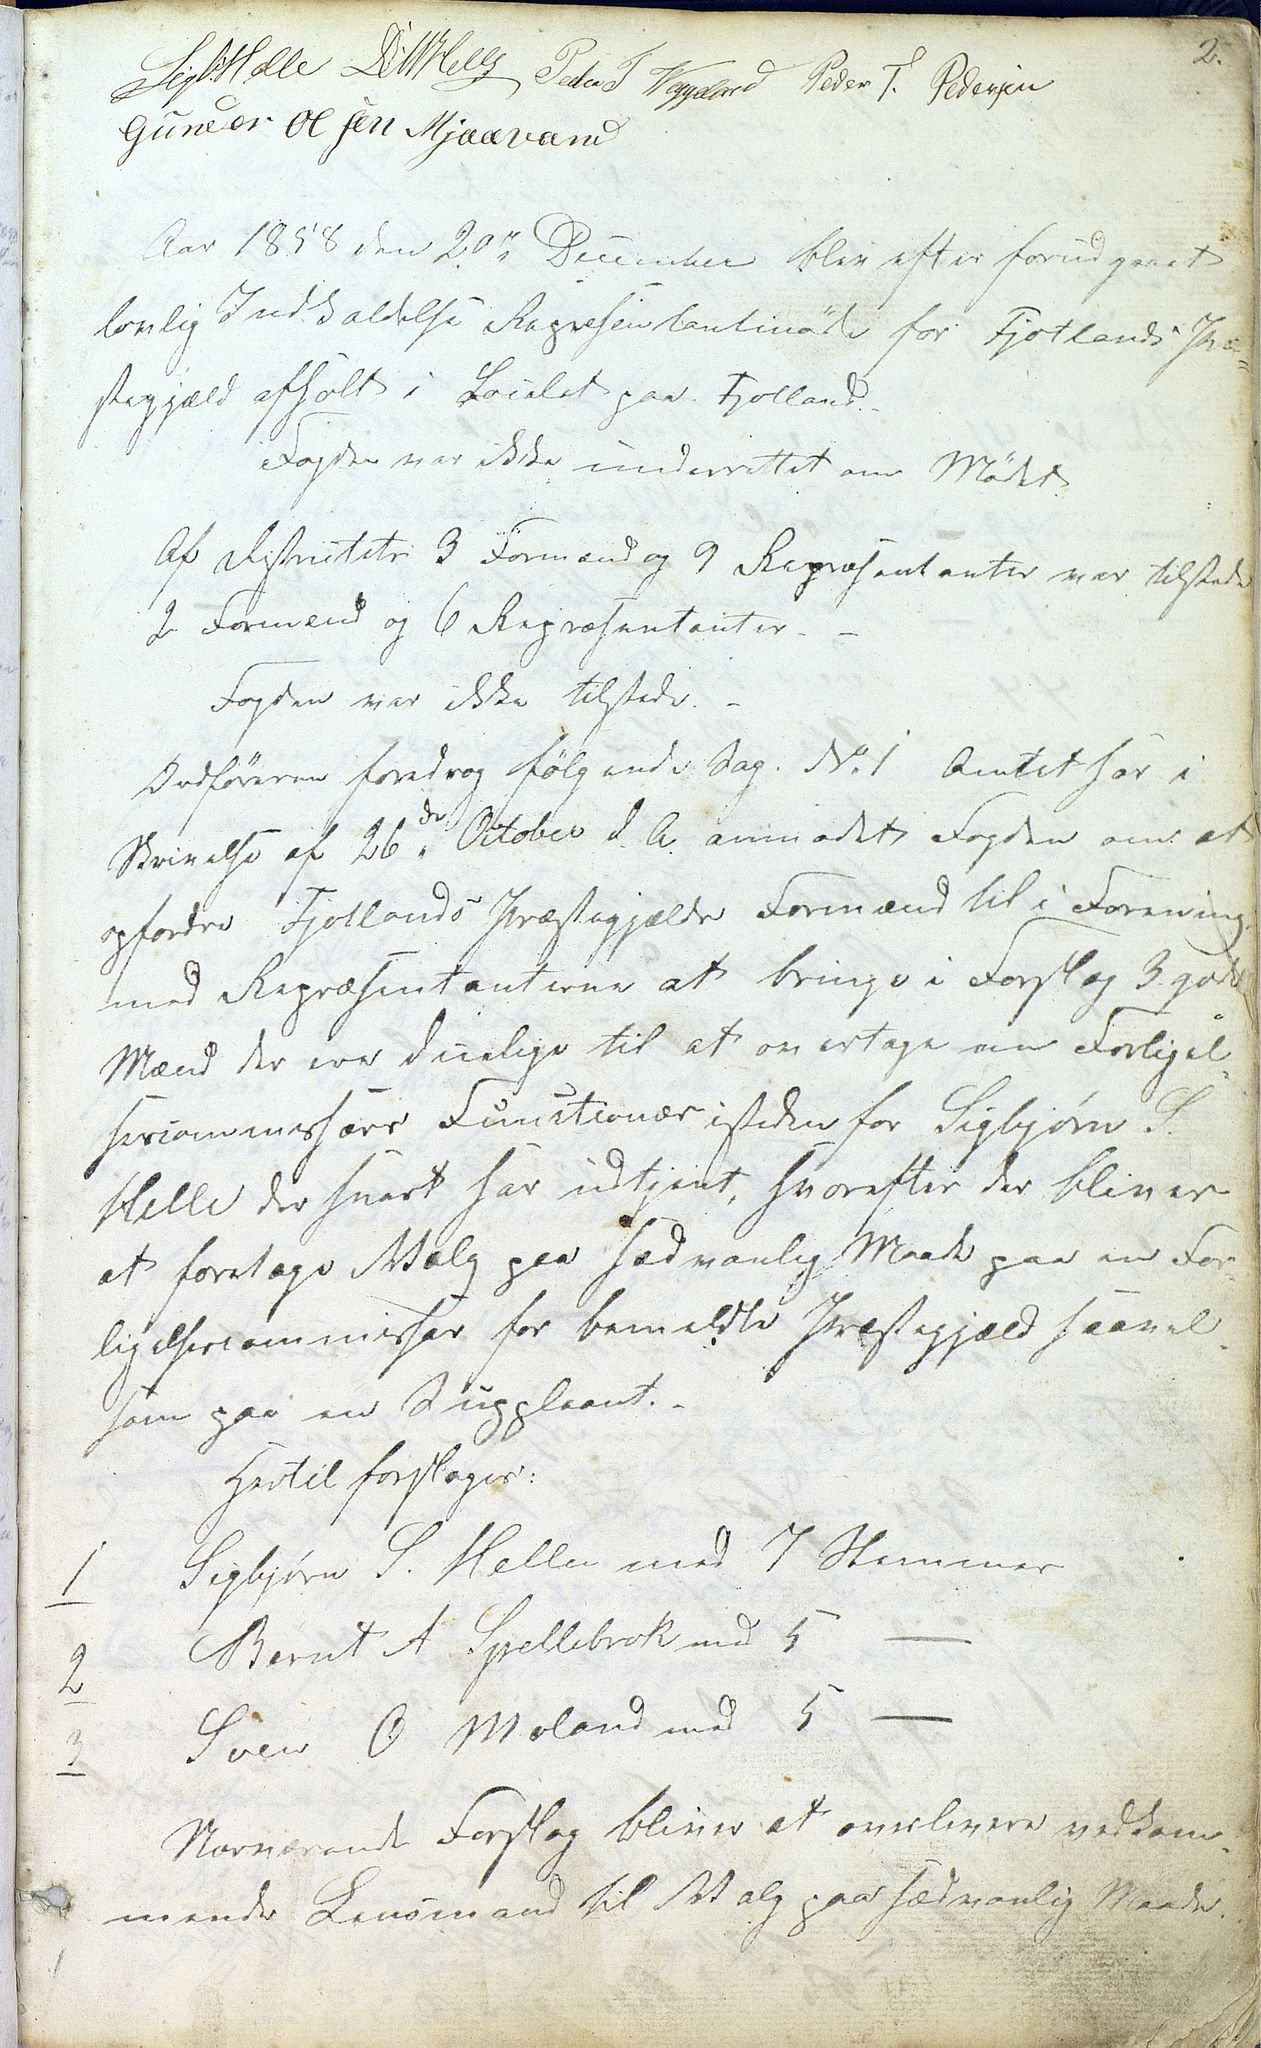 2.
Sigb. Helle Peder T Peder T. Pedersen
Gunder Olsen Mjaavand
Aar 1858 den 20de December blev efter forudgaaet
lovlig Indkaldelse Repræsentantmøde for Fjotlands Præ=
stegjæld afholt i Localet paa Fjotland.
Fogden var ikke underrettet om Mødet.
Af Distriktets 3 Formænd og 9 Repræsentanter var tilstede
2 Formænd og 6 Repræsentanter. -
Fogden var ikke tilstede. -
Ordføreren foredrog følgende Sag. No. 1 Amtet har i
Skrivelse af 26de October d. A. anmodet Fogden om at
opfordre Fjotlands Præstegjælds Formænd til i Forening
med Repræsentanterne at bringe i Forslag 3 gode
Mænd der ere duelige til at overtage en Forligel-
sescommissærs Functioner isteden for Sigbjørn S.
Helle der snart har udtjent, hvorefter der bliver
at foretage Valg paa sædvanlig Maade paa en For-
ligelsescommissær for bemeldte Præstegjæld saavel
som paa en Suppleant. -
Hertil forslages:
1 Sigbjørn S. Helle med 7 Stemmer
2 Bernt A Spellebrok med 5 —
3 Sven O Moland med 5 —
Nærværende Forslag bliver at overlevere vedkom-
mende Lensmand til Valg paa sædvanlig Maade.